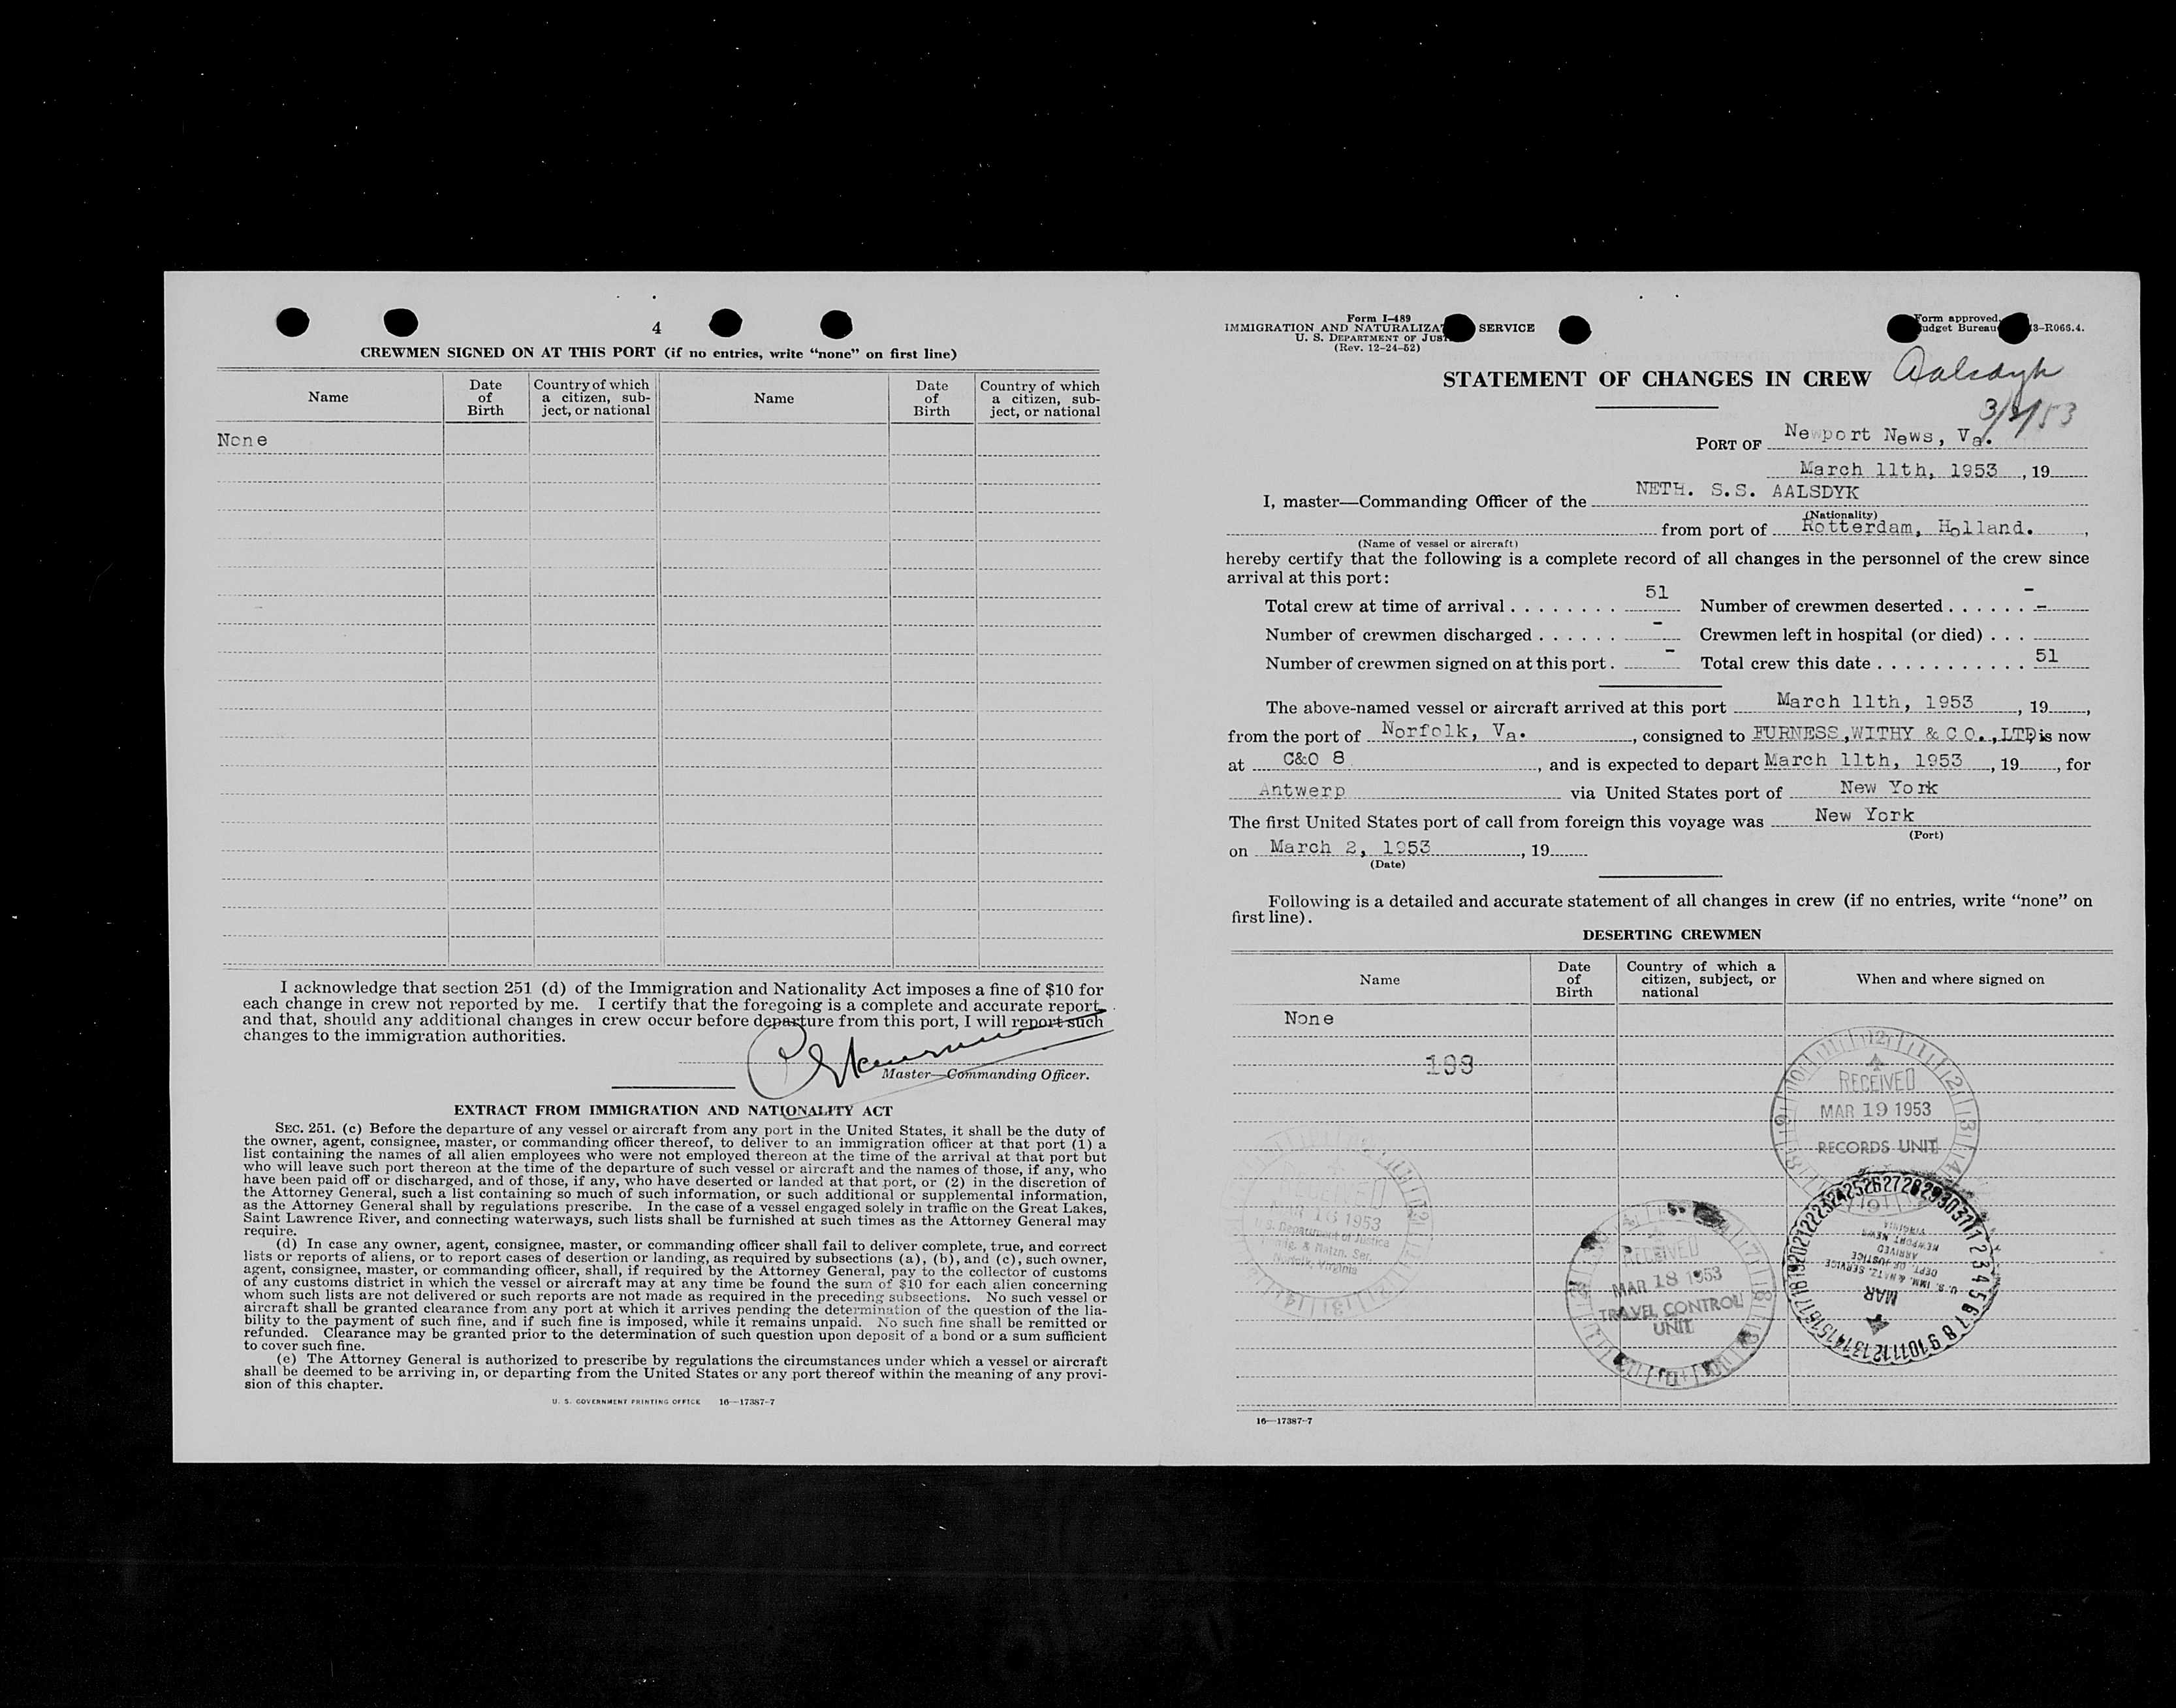 4
CREWMEN SIGNED ON AT THIS PORT (if no entries, write “none” on first line)
Name
Date of Birth
Country of which a citizen, sub-ject, or national
Name
Date of Birth
Country of which a citizen, sub-ject, or national
None
I acknowledge that section 251 (d) of the Immigration and Nationality Act imposes a fine of $10 for
each change in crew not reported by me. I certify that the foregoing is a complete and accurate report,
and that, should any additional changes in crew occur before departure from this port, I will report such
changes to the immigration authorities.
Master—Commanding Officer.
EXTRACT FROM IMMIGRATION AND NATIONALITY ACT
SEC. 251. (c) Before the departure of any vessel or aircraft from any port in the United States, it shall be the duty of
the owner, agent, consignee, master, or commanding officer thereof, to deliver to an immigration officer at that port (1) a
list containing the names of all alien employees who were not employed thereon at the time of the arrival at that port but
who will leave such port thereon at the time of the departure of such vessel or aircraft and the names of those, if any, who
have been paid off or discharged, and of those, if any, who have deserted or landed at that port, or (2) in the discretion of
the Attorney General, such a list containing so much of such information, or such additional or supplemental information,
as the Attorney General shall by regulations prescribe. In the case of a vessel engaged solely in traffic on the Great Lakes,
Saint Lawrence River, and connecting waterways, such lists shall be furnished at such times as the Attorney General may
require.
(d) In case any owner, agent, consignee, master, or commanding officer shall fail to deliver complete, true, and correct
lists or reports of aliens, or to report cases of desertion or landing, as required by subsections (a), (b), and (c), such owner,
agent, consignee, master, or commanding officer, shall, if required by the Attorney General, pay to the collector of customs
of any customs district in which the vessel or aircraft may at any time be found the sum of $10 for each alien concerning
whom such lists are not delivered or such reports are not made as required in the preceding subsections. No such vessel or
aircraft shall be granted clearance from any port at which it arrives pending the determination of the question of the lia-
bility to the payment of such fine, and if such fine is imposed, while it remains unpaid. No such fine shall be remitted or
refunded. Clearance may be granted prior to the determination of such question upon deposit of a bond or a sum sufficient
to cover such fine.
(e) The Attorney General is authorized to prescribe by regulations the circumstances under which a vessel or aircraft
shall be deemed to be arriving in, or departing from the United States or any port thereof within the meaning of any provi-
sion of this chapter.
U. S. GOVERNMENT PRINTING OFFICE 16—17387-7
Form I-489
IMMIGRATION AND NATURALIZAT SERVICE
U. S. DEPARTMENT OF JUST
(Rev. 12-24-52)
Form approved.
udget Bureau 3-R066.4.
STATEMENT OF CHANGES IN CREW
Aalsdyk
3/2/53
PORT OF Newport News, Va.
March 11th, 1953, 19
I, master—Commanding Officer of the NETH. S.S. AALSDYK
(Nationality)
from port of Rotterdam, Holland.,
(Name of vessel or aircraft)
hereby certify that the following is a complete record of all changes in the personnel of the crew since
arrival at this port:
Total crew at time of arrival ........ 51 Number of crewmen deserted ...... -
Number of crewmen discharged ...... - Crewmen left in hospital (or died) ... -
Number of crewmen signed on at this port. - Total crew this date ........... 51
The above-named vessel or aircraft arrived at this port March 11th, 1953, 19,
from the port of Norfolk, Va., consigned to FURNESS,WITHY & CO.,LTD is now
at C&O 8, and is expected to depart March 11th, 1953, 19, for
Antwerp via United States port of New York
The first United States port of call from foreign this voyage was New York
(Port)
on March 2, 1953, 19
(Date)
Following is a detailed and accurate statement of all changes in crew (if no entries, write “none” on
first line).
DESERTING CREWMEN
Name
Date of Birth
Country of which a citizen, subject, or national
When and where signed on
None
198
RECEIVED
MAR 19 1953
RECORDS UNIT
RECEIVED
MAR 16 1953
U.S. Department of Justice
Imig. & Natzn. Ser.
Norfolk, Virginia
RECEIVED
MAR 18 1953
TRAVEL CONTROL
UNIT
U. S. IMM. & NATZ. SERVICE
DEPT. OF JUSTICE
ARRIVED
NEWPORT NEWS
VIRGINIA
MAR
16—17387-7